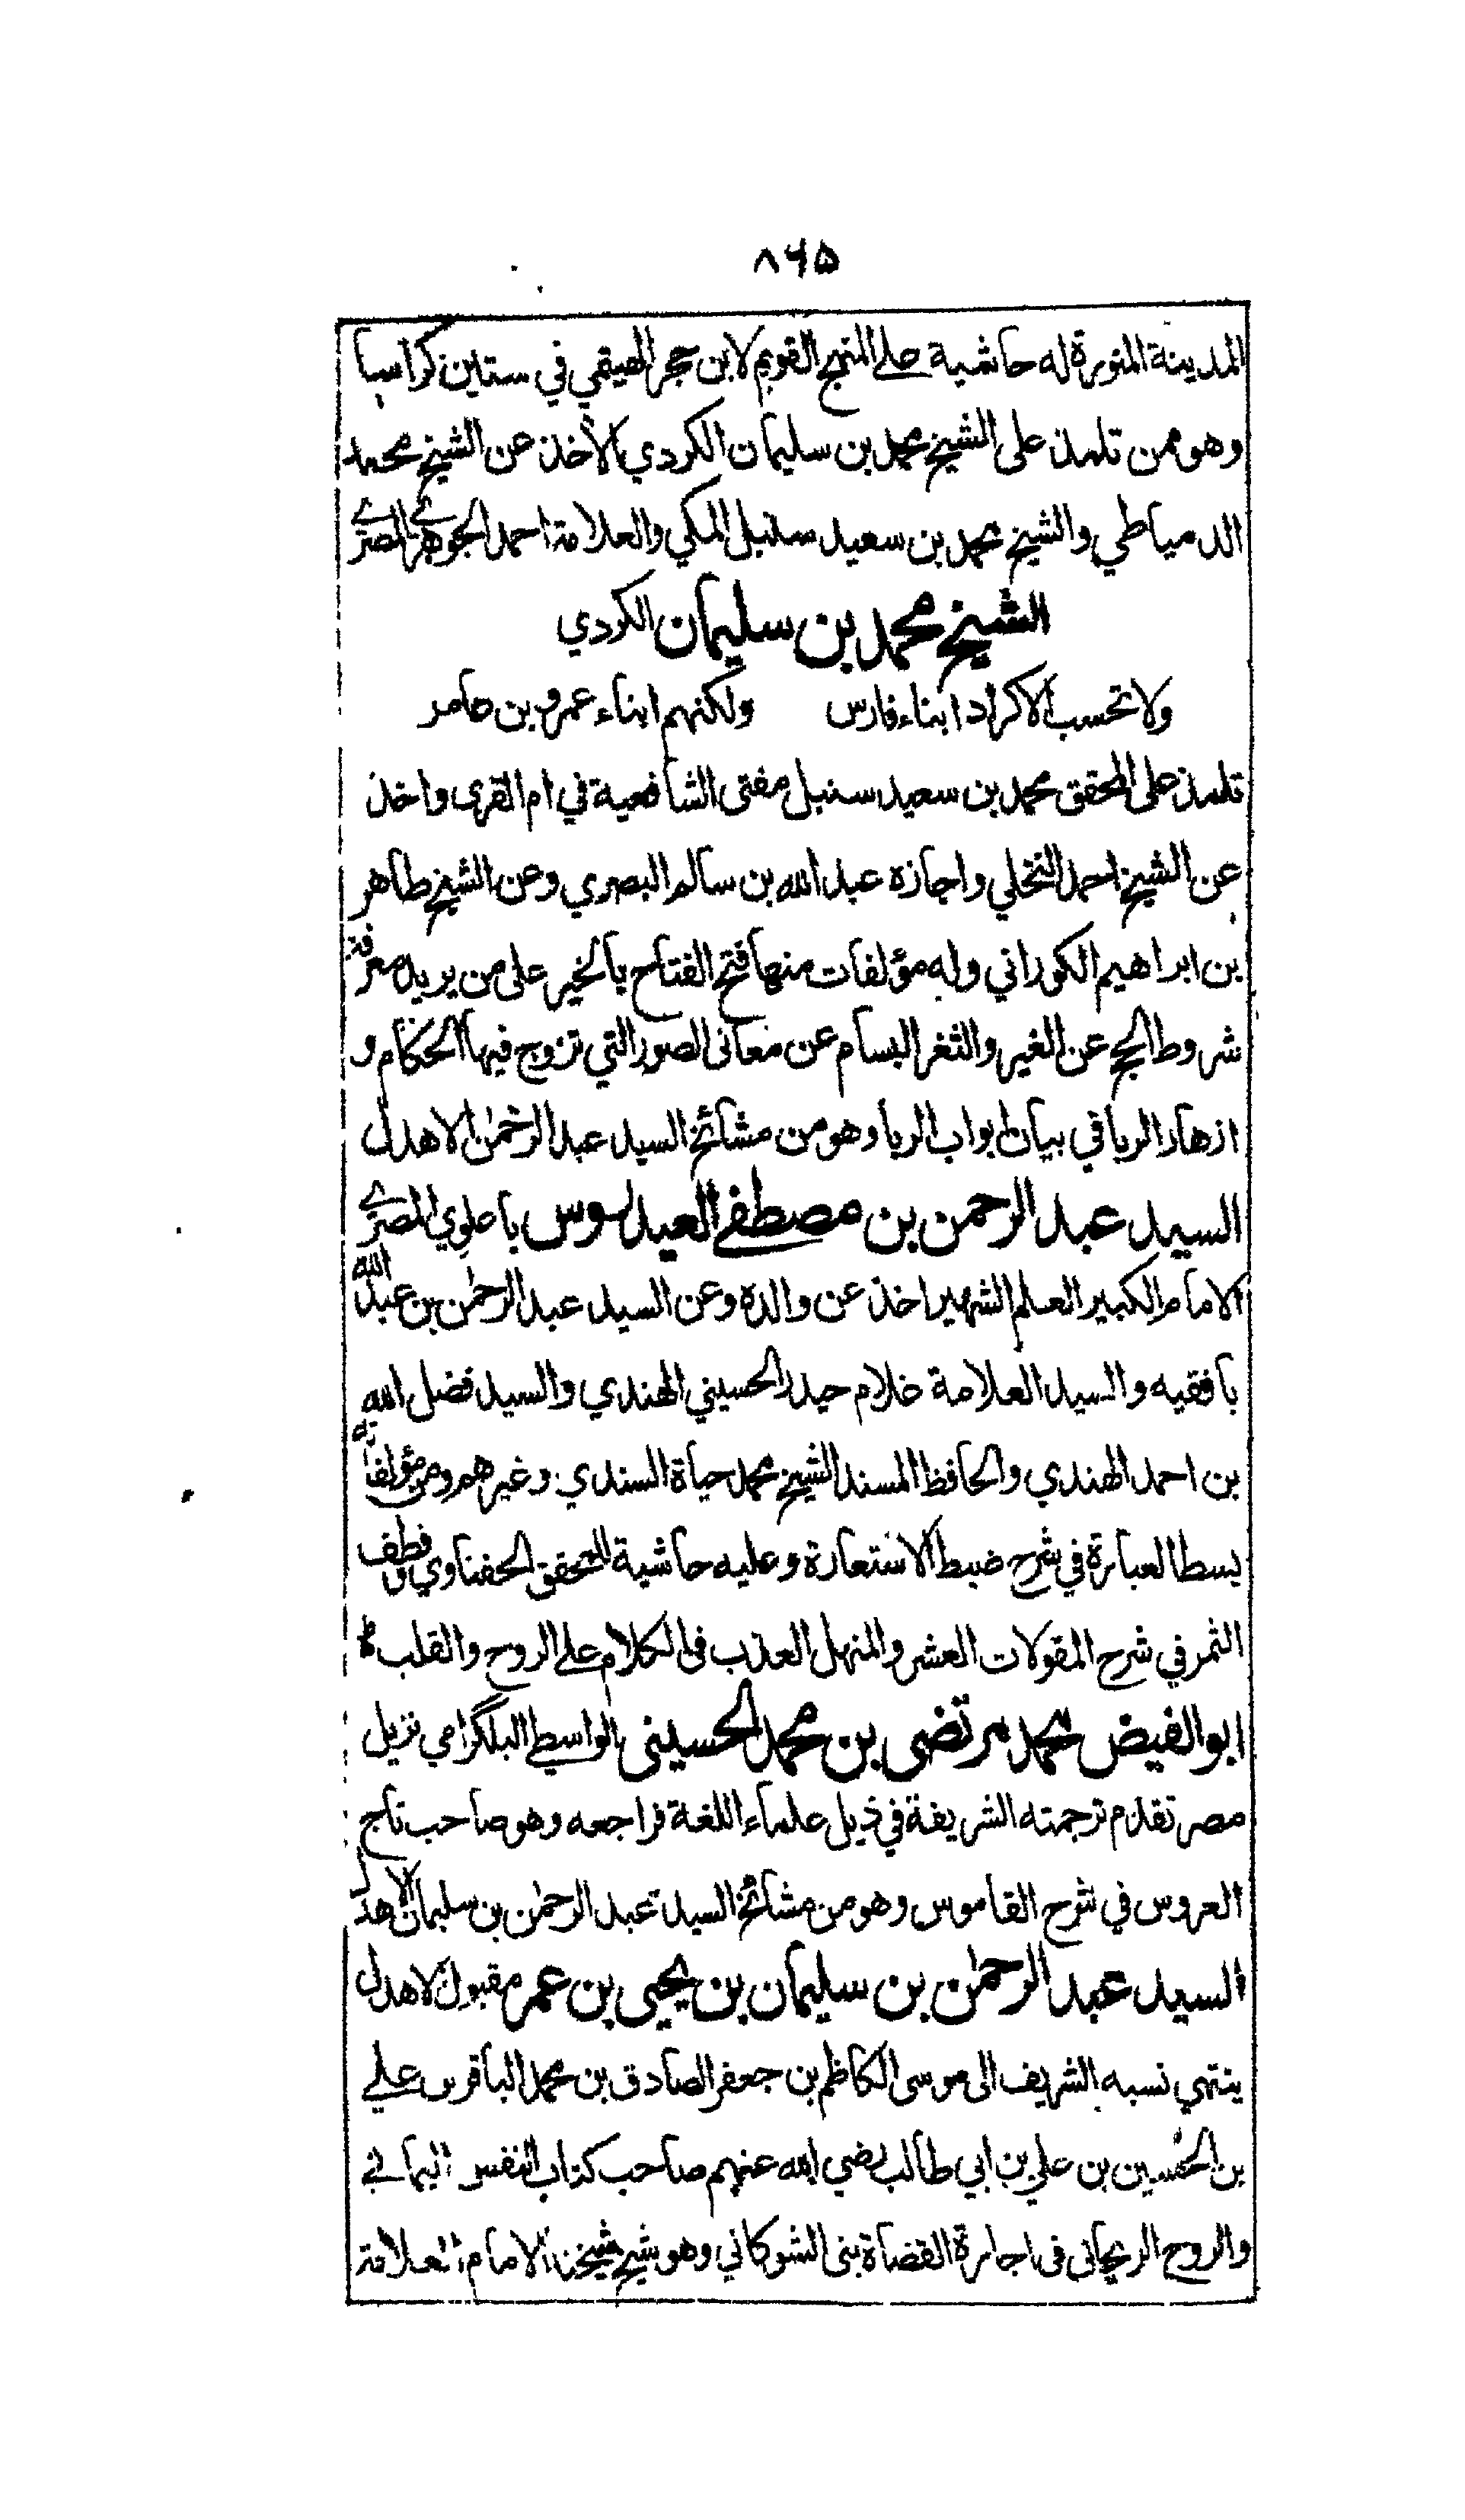 ۸۶۵
المدينة المنورة له حاشية على المنهج القويم لابن حجر الهيتمي في ستين كراسا
وهو ممن تلمذ على الشيخ محمد بن سليمان الكردي بالأخذ عن الشيخ محمد
الدمياطي والشيخ محمد بن سعيد سنبل المكي والعلامة احمد الجوهري المصري
الشيخ محمد بن سليمان الكردي
ولا تحسب الاكراد ابناء فارس ولكنهم ابناء عمرو بن عامر
تلمذ على المحقق محمد بن سعيد سنبل مفتى الشافعية في ام القرى واخذ
عن الشيخ احمد النخلي واجازه عبد الله بن سالم البصري وعن الشيخ طاهر
بن ابراهيم الكوراني وله مؤلفات منها فتح الفتاح بالخير على من يريد معرفة
شروط الحج عن الغير والثغر البسام عن معانى الصور التي تزوج فيها الحكام و
ازهار الربا في بيان ابواب الربا وهو من مشائخ السيد عبد الرحمٰن الاهدل
السيد عبد الرحمن بن مصطفے العيدروس باعلوي المصري
الامام الكبير العلم الشهير اخذ عن والده وعن السيد عبد الرحمٰن بن عبد الله
بافقيه والسيد العلامة غلام حيدر الحسيني الهندي والسيد فضل الله
بن احمد الهندي والحافظ المسند الشيخ محمد حياة السندي وغيرهم ومن مؤلفاته
بسط العبارة في شرح ضبط الاستعارة وعليه حاشية التحقق الحفناوي وقطف
الثمر في شرح المقولات العشر والمنهل العذب فى الكلام على الروح والقلب
ابو الفيض محمد مرتضى بن محمد الحسينى الواسطي البلگرامي نزيل
مصر تقدم ترجمته الشريفة في ذيل علماء اللغة فراجعه وهو صاحب تاج
العروس في شرح القاموس وهو من مشائخ السيد عبد الرحمٰن بن سليمان الاهدل
السيد عبد الرحمٰن بن سليمان بن يحيى بن عمر مقبول الاهدل
ينتهي نسبه الشريف الى موسى الكاظم بن جعفر الصادق بن محمد الباقر بن علے
بن الحسين بن علي بن ابي طالب رضي الله عنهم صاحب كتاب النفس اليمانے
والروح الريحانى فى اجازة القضاة بنى الشوكاني وهو شيخ شيخنا الامام العلامة